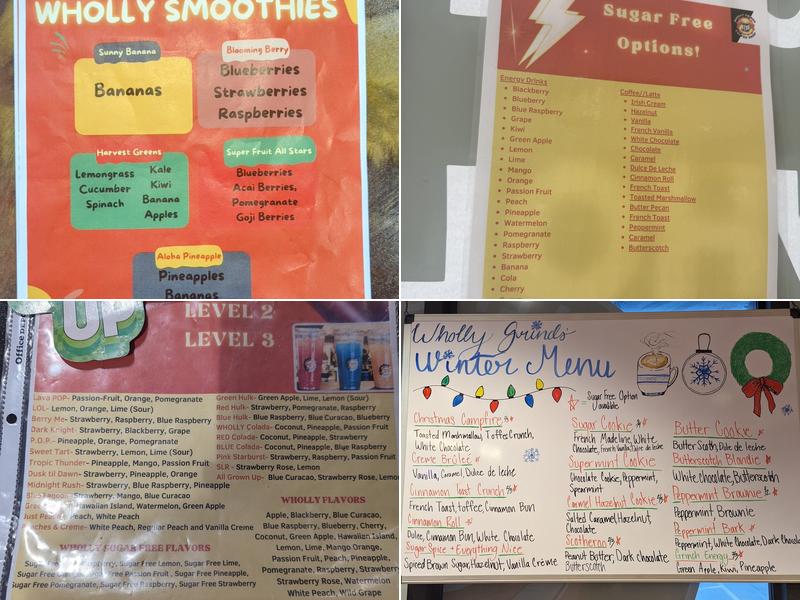 WHOLLY SMOOTHIES
Sunny Banana
Bananas
Blooming Berry
Blueberries
Strawberries
Raspberries
Harvest Greens
Lemongrass
Cucumber
Spinach
Kale
Kiwi
Banana
Apples
Super Fruit All Stars
Blueberries
Acai Berries,
Pomegranate
Goji Berries
Aloha Pineapple
Pineapples
Bananas
Sugar Free
Options!
Energy Drinks
• Blackberry
• Blueberry
• Blue Raspberry
• Grape
• Kiwi
• Green Apple
• Lemon
• Lime
• Mango
• Orange
• Passion Fruit
• Peach
• Pineapple
• Watermelon
• Pomegranate
• Raspberry
• Strawberry
• Banana
• Cola
• Cherry
Coffee//Latte
• Irish Cream
• Hazelnut
• Vanilla
• French Vanilla
• White Chocolate
• Chocolate
• Caramel
• Dulce De Leche
• Cinnamon Roll
• French Toast
• Toasted Marshmallow
• Butter Pecan
• French Toast
• Peppermint
• Caramel
• Butterscotch
Office DEP
UP
LEVEL 2
LEVEL 3
Lava POP- Passion-Fruit, Orange, Pomegranate
LOL- Lemon, Orange, Lime (Sour)
Berry Me- Strawberry, Raspberry, Blue Raspberry
Dark Knight- Strawberry, Blackberry, Grape
P.O.P.- Pineapple, Orange, Pomegranate
Sweet Tart- Strawberry, Lemon, Lime (Sour)
Tropic Thunder- Pineapple, Mango, Passion Fruit
Dusk til Dawn- Strawberry, Pineapple, Orange
Midnight Rush- Strawberry, Blue Raspberry, Pineapple
Strawberry, Mango, Blue Curacao
Hawaiian Island, Watermelon, Green Apple
Just Peachy- Peach, White Peach
Peaches & Creme- White Peach, Regular Peach and Vanilla Creme
WHOLLY SUGAR FREE FLAVORS
Raspberry, Sugar Free Lemon, Sugar Free Lime,
Sugar Free Passion Fruit, Sugar Free Pineapple,
Sugar Free Pomegranate, Sugar Free Raspberry, Sugar Free Strawberry
Green Hulk- Green Apple, Lime, Lemon (Sour)
Red Hulk- Strawberry, Pomegranate, Raspberry
Blue Hulk- Blue Raspberry, Blue Curacao, Blueberry
WHOLLY Colada- Coconut, Pineapple, Passion Fruit
RED Colada- Coconut, Pineapple, Strawberry
BLUE Colada- Coconut, Pineapple, Blue Raspberry
Pink Starburst- Strawberry, Raspberry, Passion Fruit
SLR - Strawberry Rose, Lemon
All Grown Up- Blue Curacao, Strawberry Rose, Lemon
WHOLLY FLAVORS
Apple, Blackberry, Blue Curacao,
Blue Raspberry, Blueberry, Cherry,
Coconut, Green Apple, Hawaiian Island,
Lemon, Lime, Mango Orange,
Passion Fruit, Peach, Pineapple,
Pomegranate, Raspberry, Strawberry,
Strawberry Rose, Watermelon
White Peach, Wild Grape
Wholly Grinds'
Winter Menu
= Sugar Free Option
Available
Christmas Campfire
Toasted Marshmallow, Toffee Crunch,
White Chocolate
Creme Brulee
Vanilla, Caramel, Dulce de leche
Cinnamon Toast Crunch
French Toast, toffee, Cinnamon Bun
Cinnamon Roll
Dulce, Cinnamon Bun, White Chocolate
Sugar Spice + Everything Nice
Spiced Brown Sugar, Hazelnut, Vanilla Crème
Sugar Cookie
French Madeline, White
Chocolate, French Vanilla, Dulce de leche
Supermint Cookie
Chocolate Cookie, Peppermint,
Spearmint
Caramel Hazelnut Cookie
Salted Caramel, Hazelnut,
Chocolate
Scotheroo
Peanut Butter, Dark chocolate
Butterscotch
Butter Cookie
Butter Scotch, Dulce de leche
Butterscotch Blondie
White chocolate, Butterscotch
Peppermint Brownie
Peppermint Brownie
Peppermint Bark
Peppermint, White Chocolate, Dark Chocolate
Grinch Energy
Green Apple, Kiwi, Pineapple